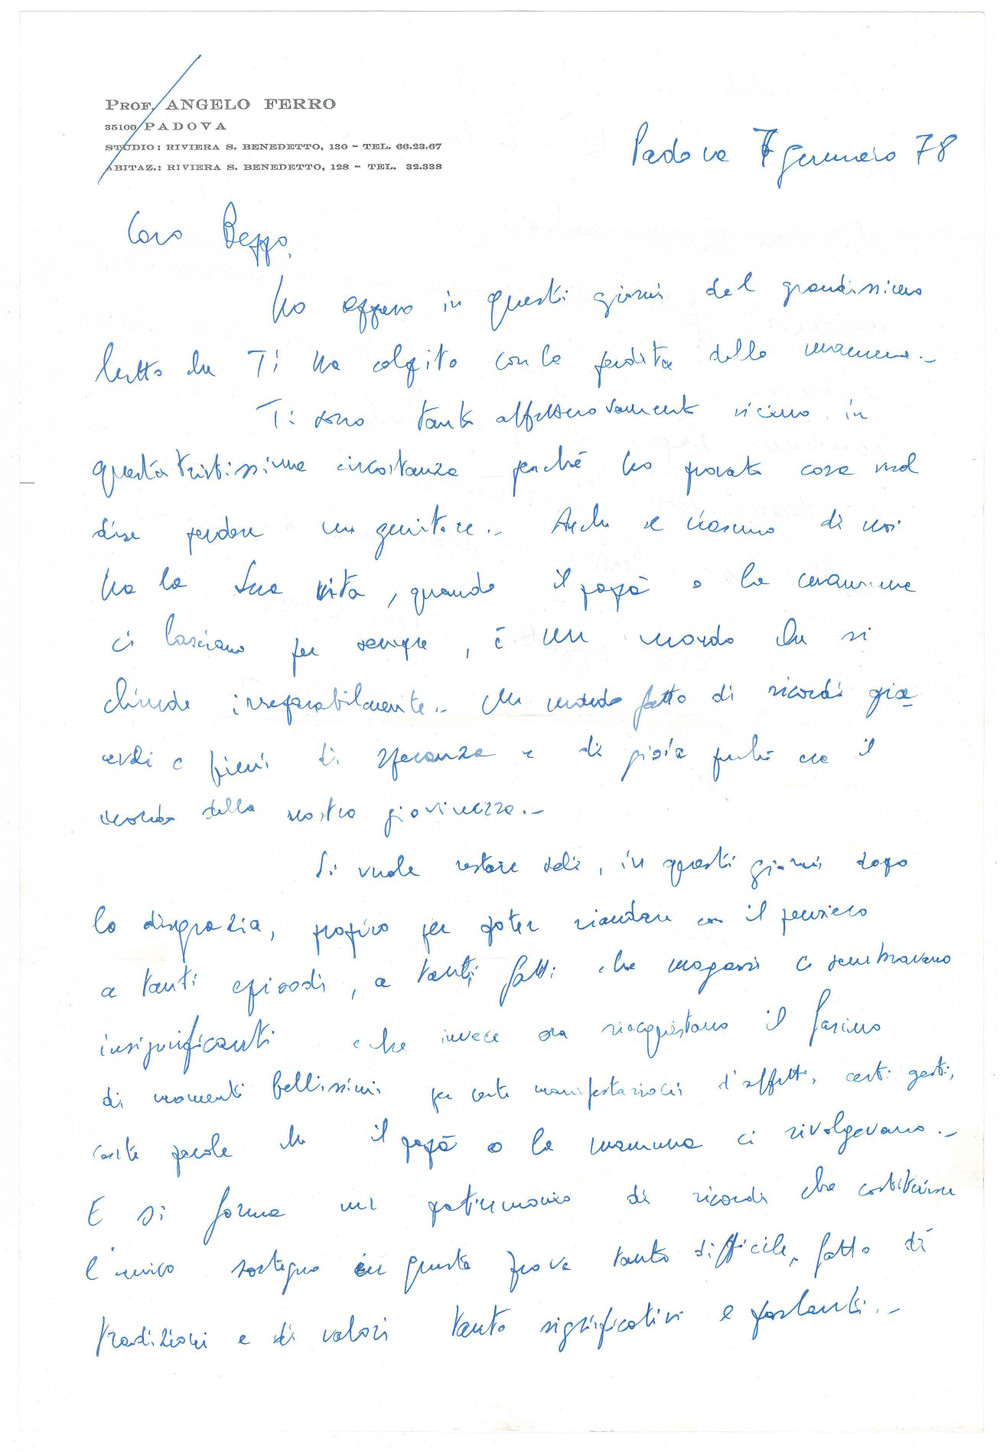 PROF. ANGELO FERRO
35100 PADOVA
STUDIO: RIVIERA S. BENEDETTO, 130 - TEL. 66.23.67
ABITAZ.: RIVIERA S. BENEDETTO, 128 - TEL. 32.338
Padova 7 gennaio 78
Caro Beppo,
ho appreso in questi giorni del grandissimo
lutto che Ti ha colpito con la perdita della mamma.-
Ti sono tanto affettuosamente vicino in
questa tristissima circostanza perché ho provato cosa vuol
dire perdere un genitore.- Anche se ciascuno di noi
ha la sua vita, quando il papà o la mamma
ci lasciano per sempre, è un mondo che si
chiude irreparabilmente.- Un mondo fatto di ricordi
e pieni di speranza e di gioia perché era il
mondo della nostra giovinezza.-
Si vuole restare soli, in questi giorni dopo
la disgrazia, proprio per poter riandare con il pensiero
a tanti episodi, a tanti fatti che magari ci sembravano
insignificanti e che invece ora riacquistano il fascino
di momenti bellissimi per certe manifestazioni d'affetto, certi gesti,
certe parole che il papà o la mamma ci rivolgevano.-
E si forma un patrimonio di ricordi che costituisce
l'unico sostegno in questa prova tanto difficile, fatto di
tradizioni e di valori tanto significativi e portanti.-